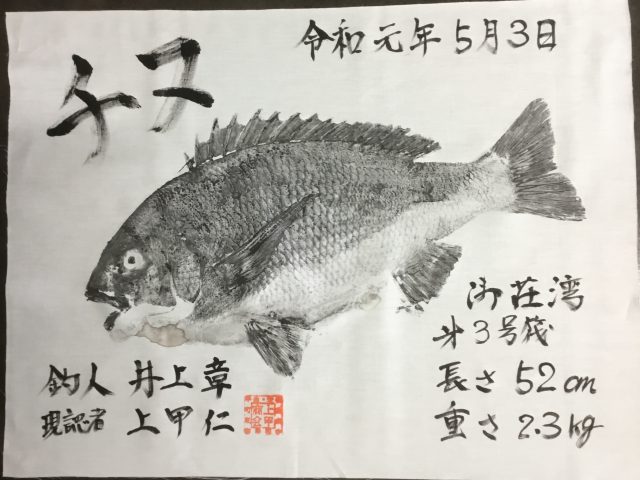 令和元年5月3日
チヌ
御荘湾
才3号筏
長さ52cm
重さ2.3kg
釣人 井上章
現認者 上甲仁